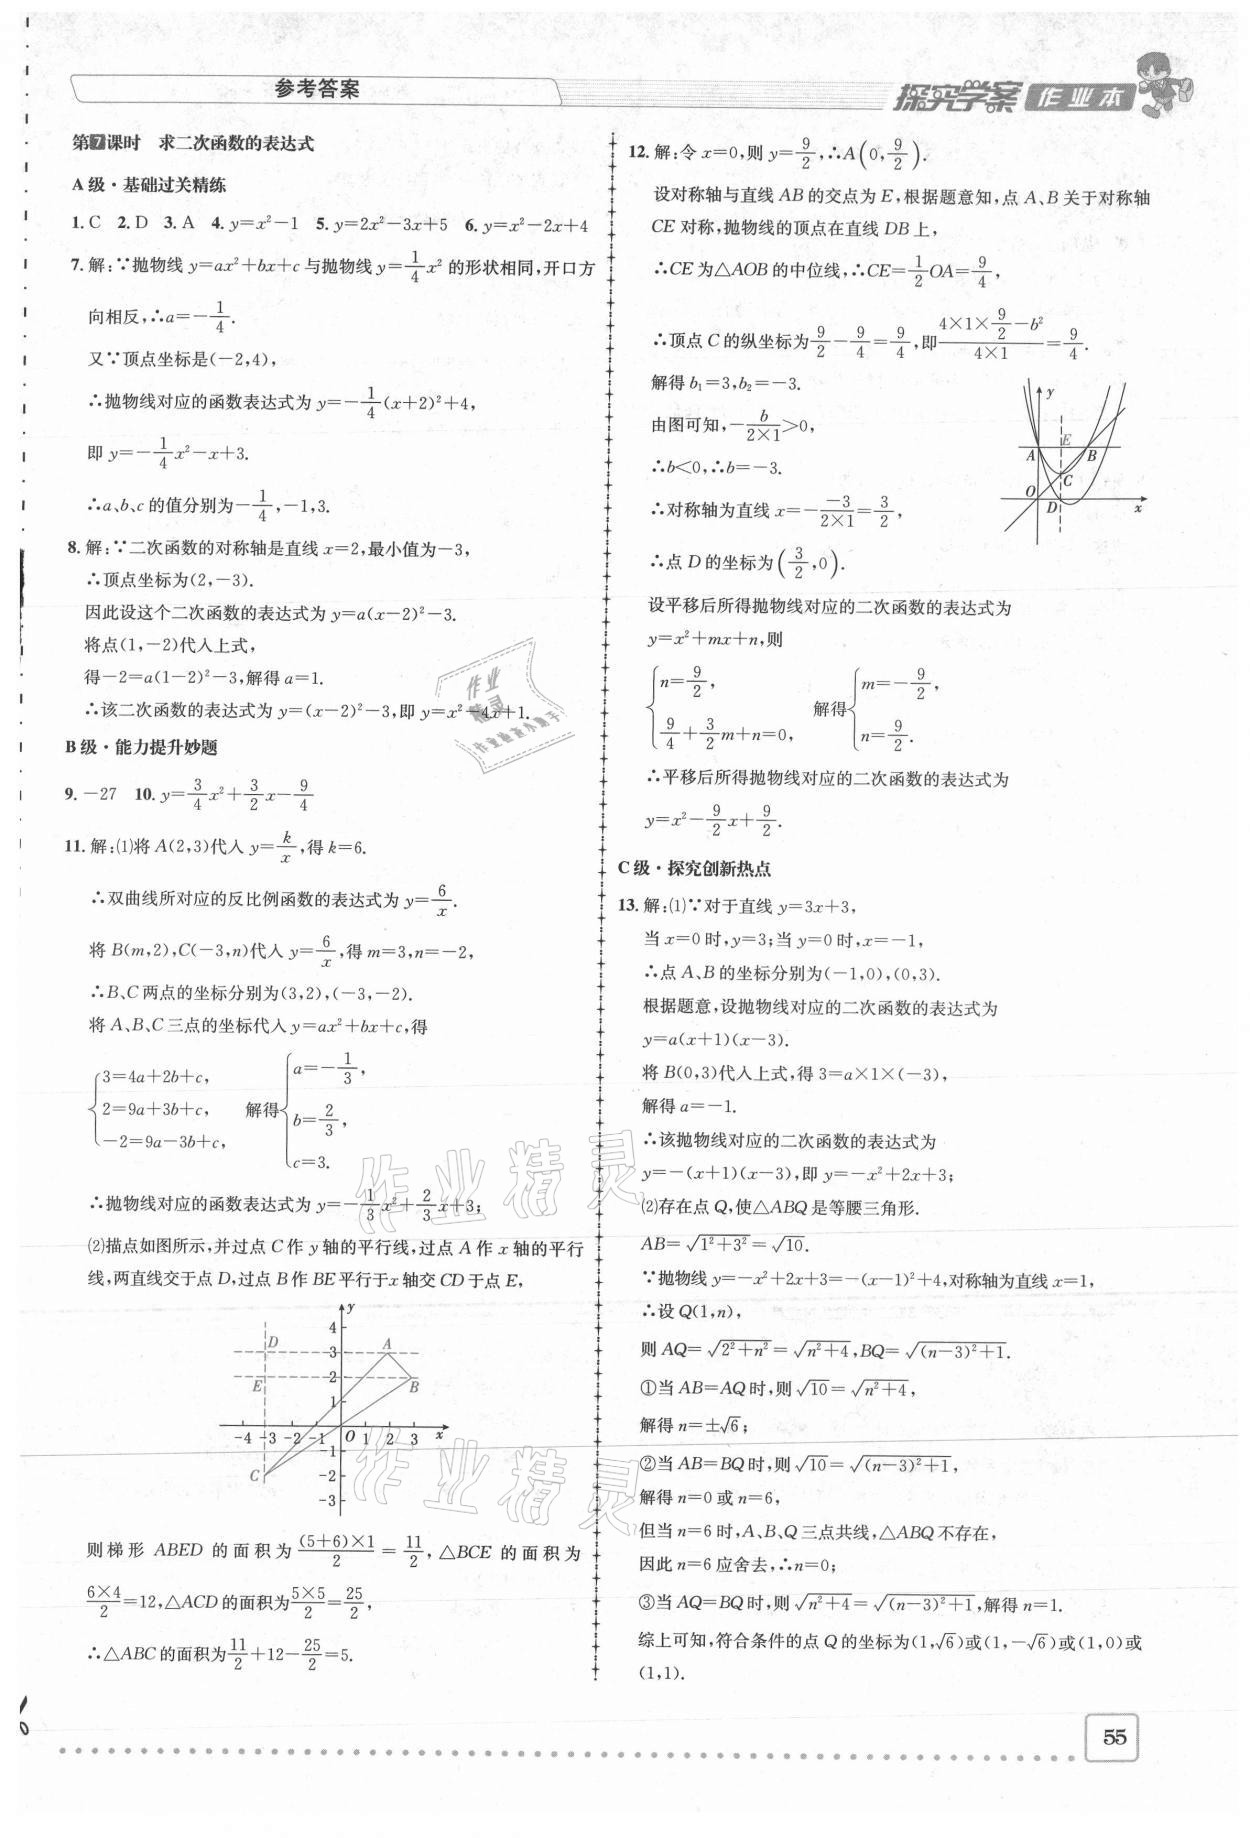 参考答案
探究学案 作业本
第7课时 求二次函数的表达式
A 级·基础过关精练
1. C 2. D 3. A 4. y=x²-1 5. y=2x²-3x+5 6. y=x²-2x+4
7. 解:∵抛物线 y=ax²+bx+c 与抛物线 y=1/4x² 的形状相同,开口方
向相反,∴a=-1/4.
又∵顶点坐标是(-2,4),
∴抛物线对应的函数表达式为 y=-1/4(x+2)²+4,
即 y=-1/4x²-x+3.
∴a、b、c 的值分别为-1/4,-1,3.
8. 解:∵二次函数的对称轴是直线 x=2,最小值为-3,
∴顶点坐标为(2,-3).
因此设这个二次函数的表达式为 y=a(x-2)²-3.
将点(1,-2)代入上式,
得-2=a(1-2)²-3,解得 a=1.
∴该二次函数的表达式为 y=(x-2)²-3,即 y=x²-4x+1.
B 级·能力提升妙题
9. -27 10. y=3/4x²+3/2x-9/4
11. 解:(1)将 A(2,3)代入 y=k/x,得 k=6.
∴双曲线所对应的反比例函数的表达式为 y=6/x.
将 B(m,2),C(-3,n)代入 y=6/x,得 m=3,n=-2,
∴B、C 两点的坐标分别为(3,2),(-3,-2).
将 A、B、C 三点的坐标代入 y=ax²+bx+c,得
{3=4a+2b+c, 2=9a+3b+c, -2=9a-3b+c, 解得{a=-1/3, b=2/3, c=3.
∴抛物线对应的函数表达式为 y=-1/3x²+2/3x+3;
(2)描点如图所示,并过点 C 作 y 轴的平行线,过点 A 作 x 轴的平行
线,两直线交于点 D,过点 B 作 BE 平行于 x 轴交 CD 于点 E,
y
4
D 3 A
E 2 B
1
-4 -3 -2 -1 O 1 2 3 x
-1
C -2
-3
则梯形 ABED 的面积为 (5+6)×1/2 = 11/2, △BCE 的面积为
6×4/2=12,△ACD 的面积为5×5/2=25/2,
∴△ABC 的面积为11/2+12-25/2=5.
12. 解:令 x=0,则 y=9/2,∴A(0,9/2).
设对称轴与直线 AB 的交点为 E,根据题意知,点 A、B 关于对称轴
CE 对称,抛物线的顶点在直线 OB 上,
∴CE 为△AOB 的中位线,∴CE=1/2OA=9/4,
∴顶点 C 的纵坐标为9/2-9/4=9/4,即(4×1×9/2-b²)/(4×1)=9/4.
解得 b₁=3,b₂=-3.
由图可知,-b/(2×1)>0,
∴b<0,∴b=-3.
∴对称轴为直线 x=-(-3)/(2×1)=3/2,
∴点 D 的坐标为(3/2,0).
y
A E B
C
O D x
设平移后所得抛物线对应的二次函数的表达式为
y=x²+mx+n,则
{n=9/2, 9/4+3/2m+n=0, 解得{m=-9/2, n=9/2.
∴平移后所得抛物线对应的二次函数的表达式为
y=x²-9/2x+9/2.
C 级·探究创新热点
13. 解:(1)∵对于直线 y=3x+3,
当 x=0 时,y=3;当 y=0 时,x=-1,
∴点 A、B 的坐标分别为(-1,0),(0,3).
根据题意,设抛物线对应的二次函数的表达式为
y=a(x+1)(x-3).
将 B(0,3)代入上式,得 3=a×1×(-3),
解得 a=-1.
∴该抛物线对应的二次函数的表达式为
y=-(x+1)(x-3),即 y=-x²+2x+3;
(2)存在点 Q,使△ABQ 是等腰三角形.
AB=√(1²+3²)=√10.
∵抛物线 y=-x²+2x+3=-(x-1)²+4,对称轴为直线 x=1,
∴设 Q(1,n),
则 AQ=√(2²+n²)=√(n²+4),BQ=√((n-3)²+1).
①当 AB=AQ 时,则√10=√(n²+4),
解得 n=±√6;
②当 AB=BQ 时,则√10=√((n-3)²+1),
解得 n=0 或 n=6,
但当 n=6 时,A、B、Q 三点共线,△ABQ 不存在,
因此 n=6 应舍去,∴n=0;
③当 AQ=BQ 时,则√(n²+4)=√((n-3)²+1),解得 n=1.
综上可知,符合条件的点 Q 的坐标为(1,√6)或(1,-√6)或(1,0)或
(1,1).
作业精灵
作业精灵
作业精灵
55